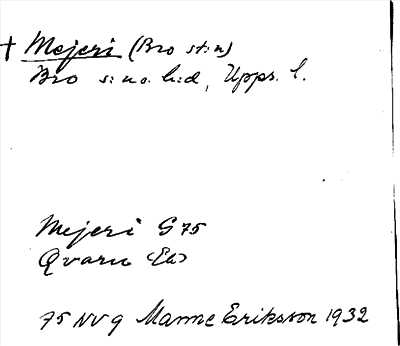 † Mejeri (Bro st:n)
Bro s:n o. h:d, Upps. l.
Mejeri G 75
Qvarn (Ek)
75 NV 9 Manne Eriksson 1932